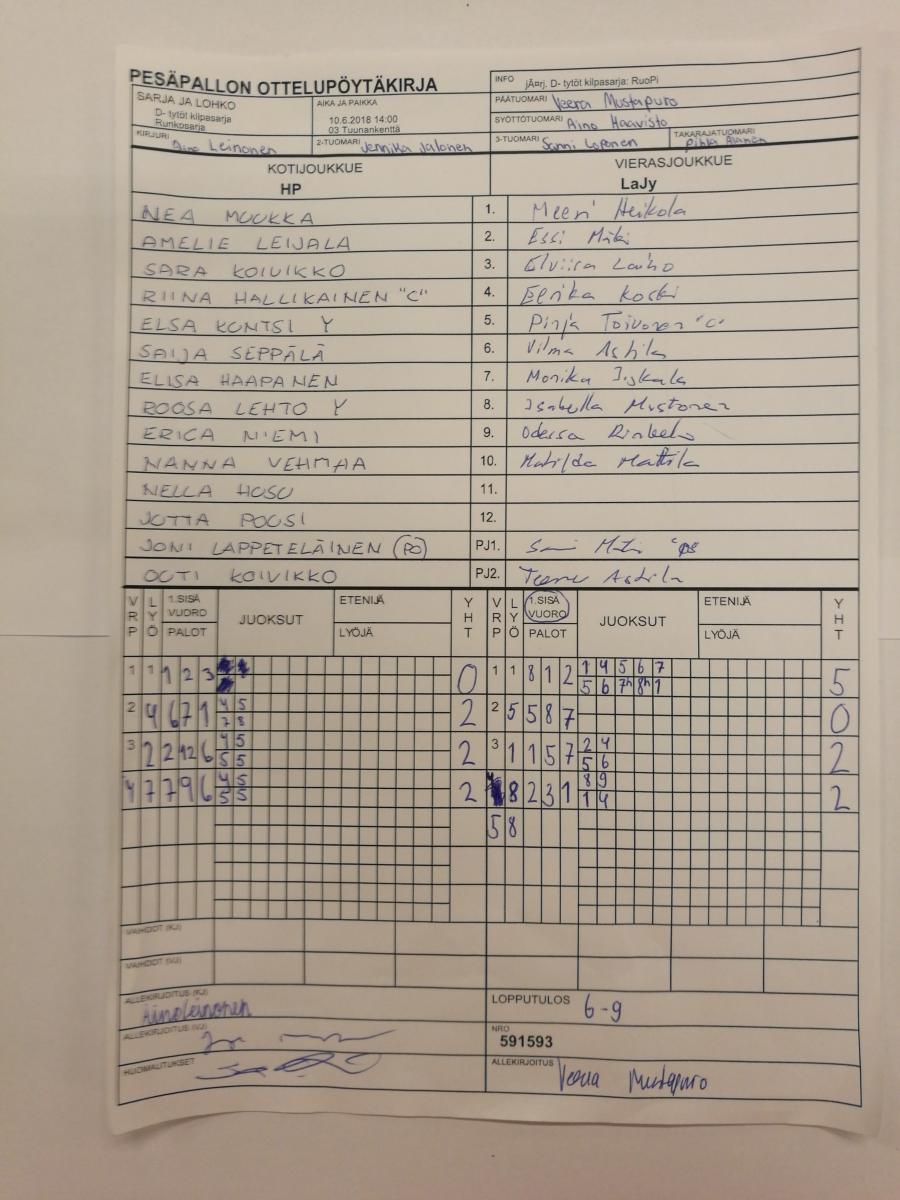 PESÄPALLON OTTELUPÖYTÄKIRJA
INFO jÃ¤rj. D- tytöt kilpasarja: RuoPi
SARJA JA LOHKO
D- tytöt kilpasarja
Runkosarja
AIKA JA PAIKKA
10.6.2018 14:00
03 Tuunankenttä
PÄÄTUOMARI Veera Mustapuro
SYÖTTÖTUOMARI Aino Haavisto
KIRJURI Aino Leinonen
2-TUOMARI Jennika Jalonen
3-TUOMARI Sanni Loponen
TAKARAJATUOMARI Pihla Alanen
KOTIJOUKKUE
HP
VIERASJOUKKUE
LaJy
NEA MUUKKA 1. Meeri Heikola
AMELIE LEIJALA 2. Essi Mäki
SARA KOIVIKKO 3. Elviira Laiho
RIINA HALLIKAINEN "C" 4. Eerika Koski
ELSA KONTSI Y 5. Pinja Toivonen "C"
SAIJA SEPPÄLÄ 6. Vilma Astila
ELISA HAAPANEN 7. Monika
ROOSA LEHTO Y 8. Isabella Mustonen
ERICA NIEMI 9. Odessa
NANNA VEHMAA 10. Matilda Mattila
NELLA HOSU 11.
JUTTA POUSI 12.
JONI LAPPETELÄINEN (PO) PJ1.
OUTI KOIVIKKO PJ2. Astila
VRP LYÖ 1.SISÄ VUORO PALOT JUOKSUT ETENIJÄ LYÖJÄ YHT VRP LYÖ 1.SISÄ VUORO PALOT JUOKSUT ETENIJÄ LYÖJÄ YHT
1 1 1 2 3 0 1 1 8 1 2 1 4 5 6 7 5
5 6 7h 8h 1
2 4 6 7 1 4 5 2 2 5 5 8 7 0
7 8
3 2 2 12 6 4 5 2 3 1 1 5 7 2 4 2
5 5 5 6
4 7 7 9 6 4 5 2 8 2 3 1 8 9 2
5 5 1 4
5 8
VAIHDOT (KJ)
VAIHDOT (VJ)
ALLEKIRJOITUS (KJ) Aino Leinonen
LOPPUTULOS 6-9
ALLEKIRJOITUS (VJ)
NRO
591593
HUOMAUTUKSET
ALLEKIRJOITUS Veera Mustapuro